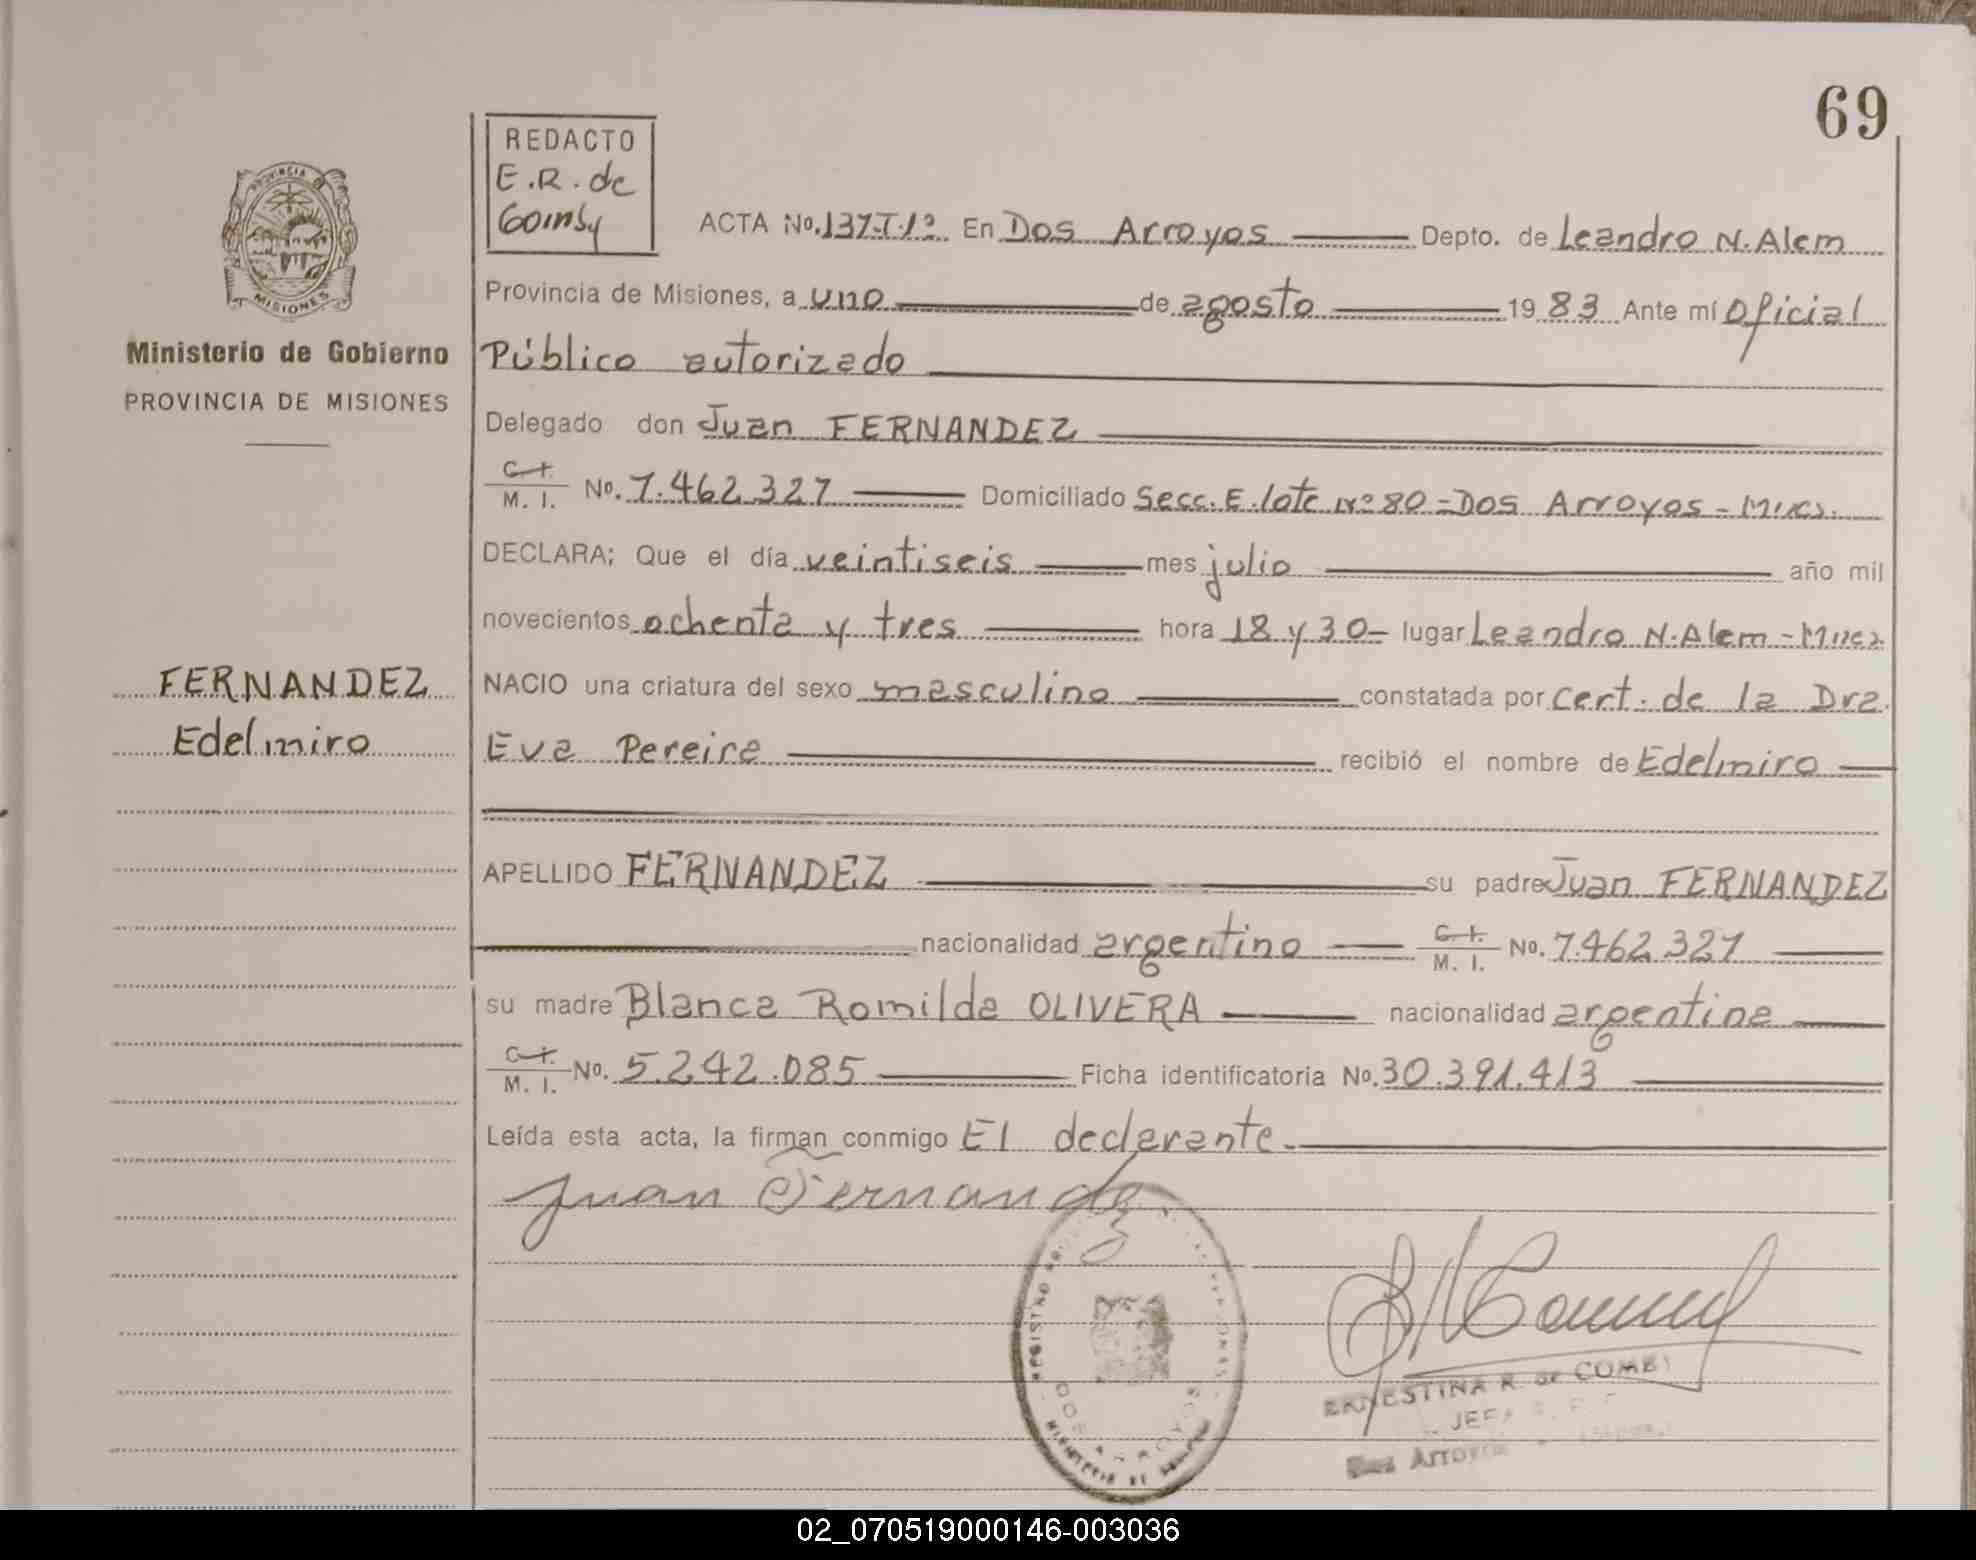 69
REDACTO
E.R. de
Gomby
PROVINCIA
MISIONES
Ministerio de Gobierno
PROVINCIA DE MISIONES
FERNANDEZ
Edelmiro
ACTA No. 137-T-1º En Dos Arroyos Depto. de Leandro N. Alem
Provincia de Misiones, a uno de agosto 1983 Ante mí Oficial
Público autorizado
Delegado don Juan FERNANDEZ
C.I. M. I. No. 7.462.327 Domiciliado Secc. E. lote nº 80 - Dos Arroyos -
DECLARA; Que el día veintiseis mes julio año mil
novecientos ochenta y tres hora 18 y 30- lugar Leandro N. Alem -
NACIO una criatura del sexo masculino constatada por cert. de la Dra.
Eva Pereira recibió el nombre de Edelmiro
APELLIDO FERNANDEZ su padre Juan FERNANDEZ
nacionalidad argentino C.I. M. I. No. 7.462.327
su madre Blanca Romilda OLIVERA nacionalidad argentina
C.I. M. I. No. 5.242.085 Ficha identificatoria No. 30.391.413
Leída esta acta, la firman conmigo El declarante.
Juan Fernandez
REGISTRO
DOS ARROYOS
MINISTERIO DE
ERNESTINA R. de
JEFA
Dos Arroyos
02_070519000146-003036